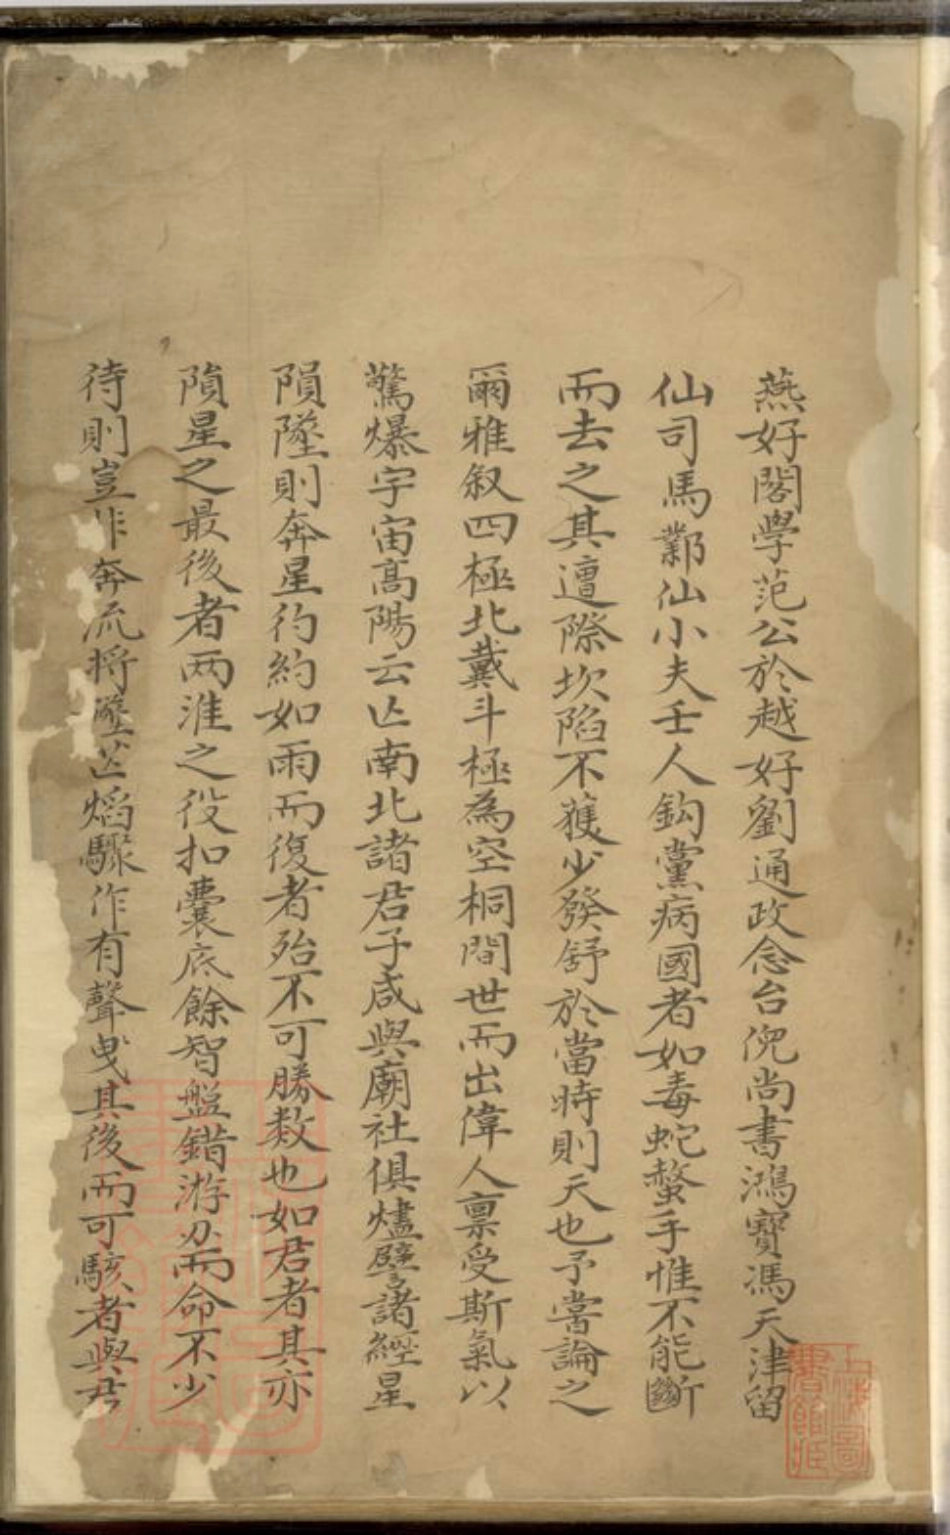 燕好閣學范公於越好劉通政念台倪尚書鴻寶馮天津留
仙司馬鄴仙小夫壬人鈎黨病國者如毒蛇螫手惟不能斷
而去之其遭際坎陷不獲少發舒於當時則天也予嘗論之
爾雅叙四極北戴斗極為空桐間世而出偉人禀受斯氣以
驚爆宇宙高陽云亾南北諸君子咸與廟社俱燼譬諸經星
隕墜則奔星彴約如雨而復者殆不可勝数也如君者其亦
隕星之最後者两淮之役扣囊底餘智盤錯游刃而命不少
待則豈非奔流將墜芒焰驟作有聲曵其後而可駭者與君
上海圖書館藏